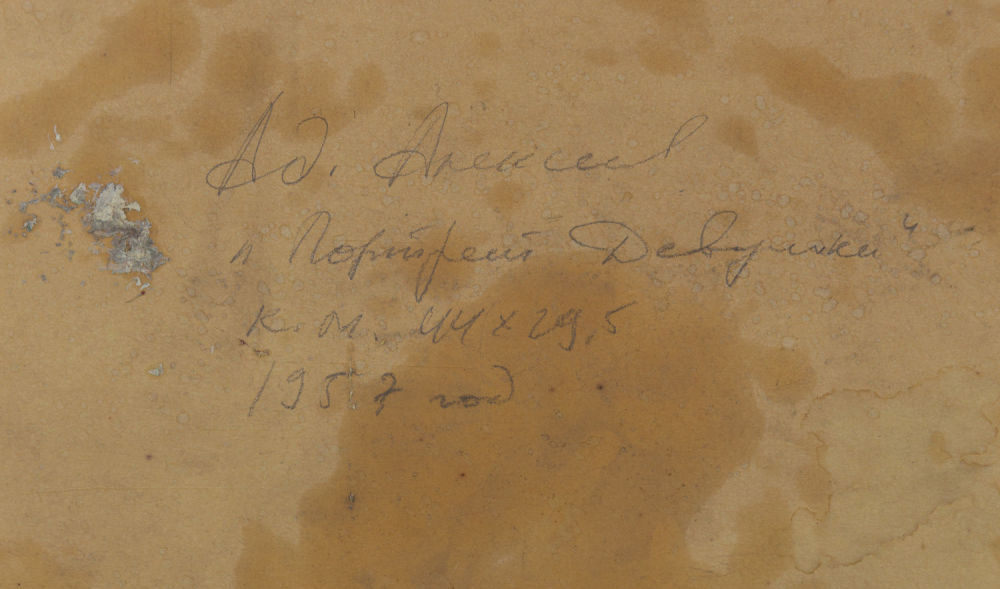 Ад. Алексеев
„Портрет Девушки“
к.м. 44х29,5
1957 год